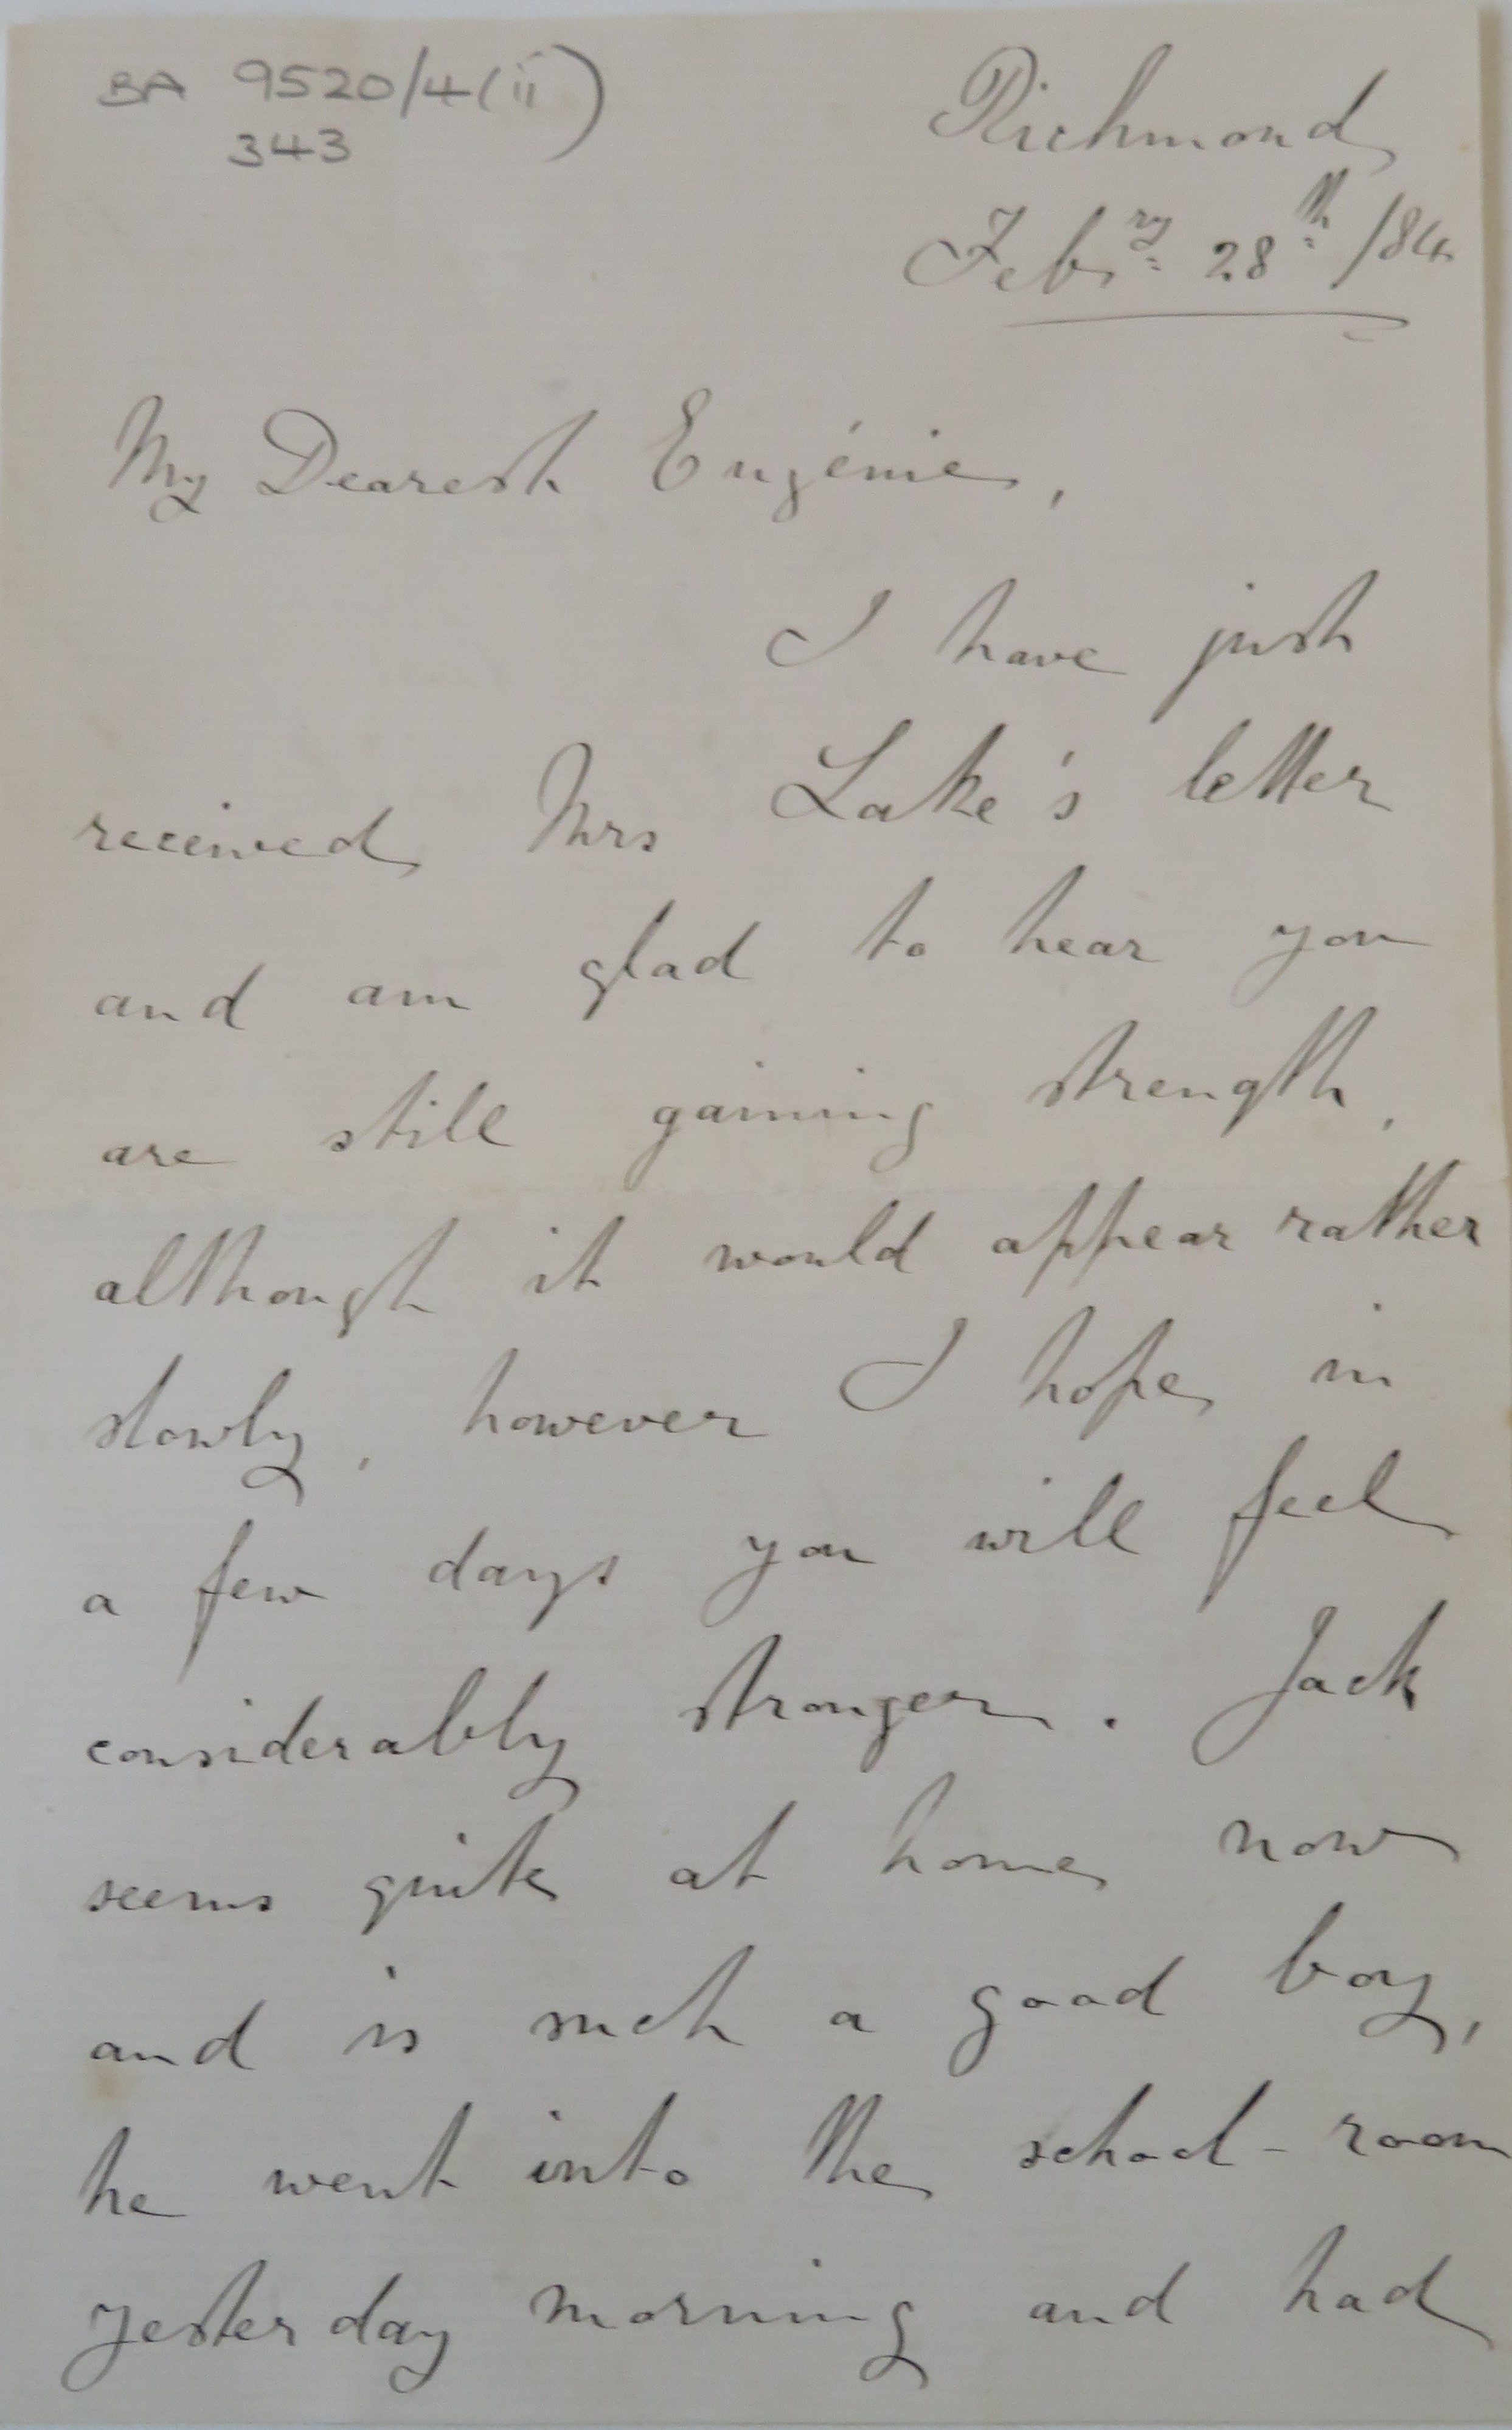 BA 9520/4(ii)
343
Richmond
Feb.ry 28th /84
My Dearest Eugénie,
I have just
received Mrs Lake's letter
and am glad to hear you
are still gaining strength,
although it would appear rather
slowly, however I hope in
a few days you will feel
considerably stronger. Jack
seems quite at home now
and is such a good boy,
he went into the school-room
yesterday morning and had